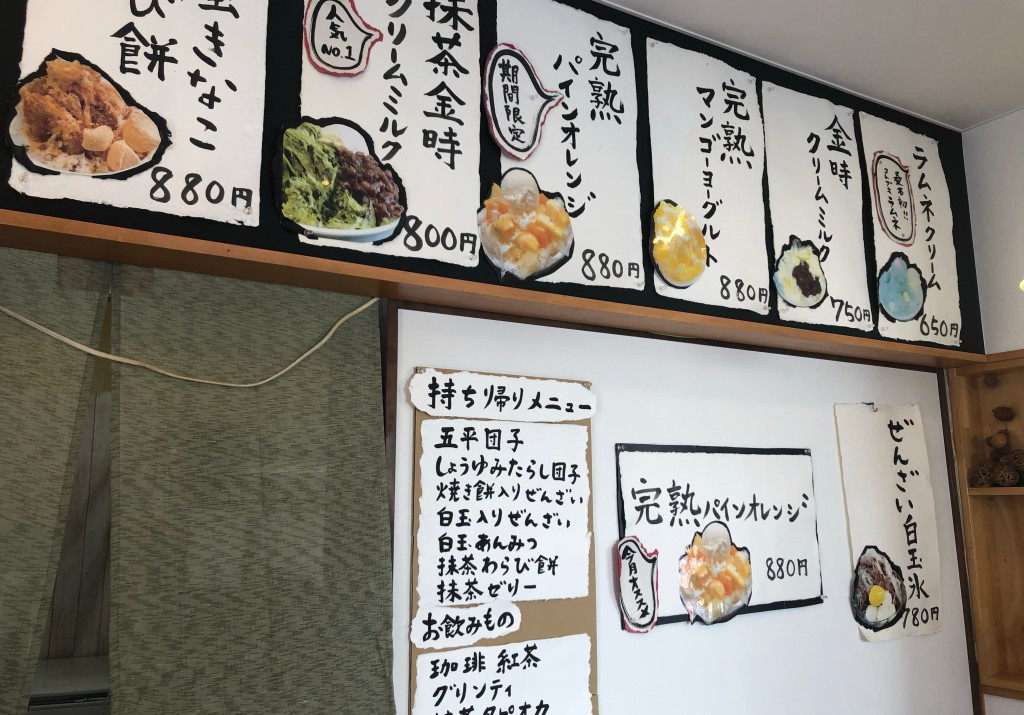 きなこ
び餅
880円
人気
NO.1
抹茶金時
クリームミルク
800円
完熟
パインオレンジ
期間限定
880円
完熟
マンゴーヨーグルト
880円
金時
クリームミルク
750円
ラムネクリーム
650円
持ち帰りメニュー
五平団子
しょうゆみたらし団子
焼き餅入りぜんざい
白玉入りぜんざい
白玉あんみつ
抹茶わらび餅
抹茶ゼリー
お飲みもの
珈琲 紅茶
グリンティ
抹茶タピオカ
完熟パインオレンジ
880円
ぜんざい白玉氷
780円